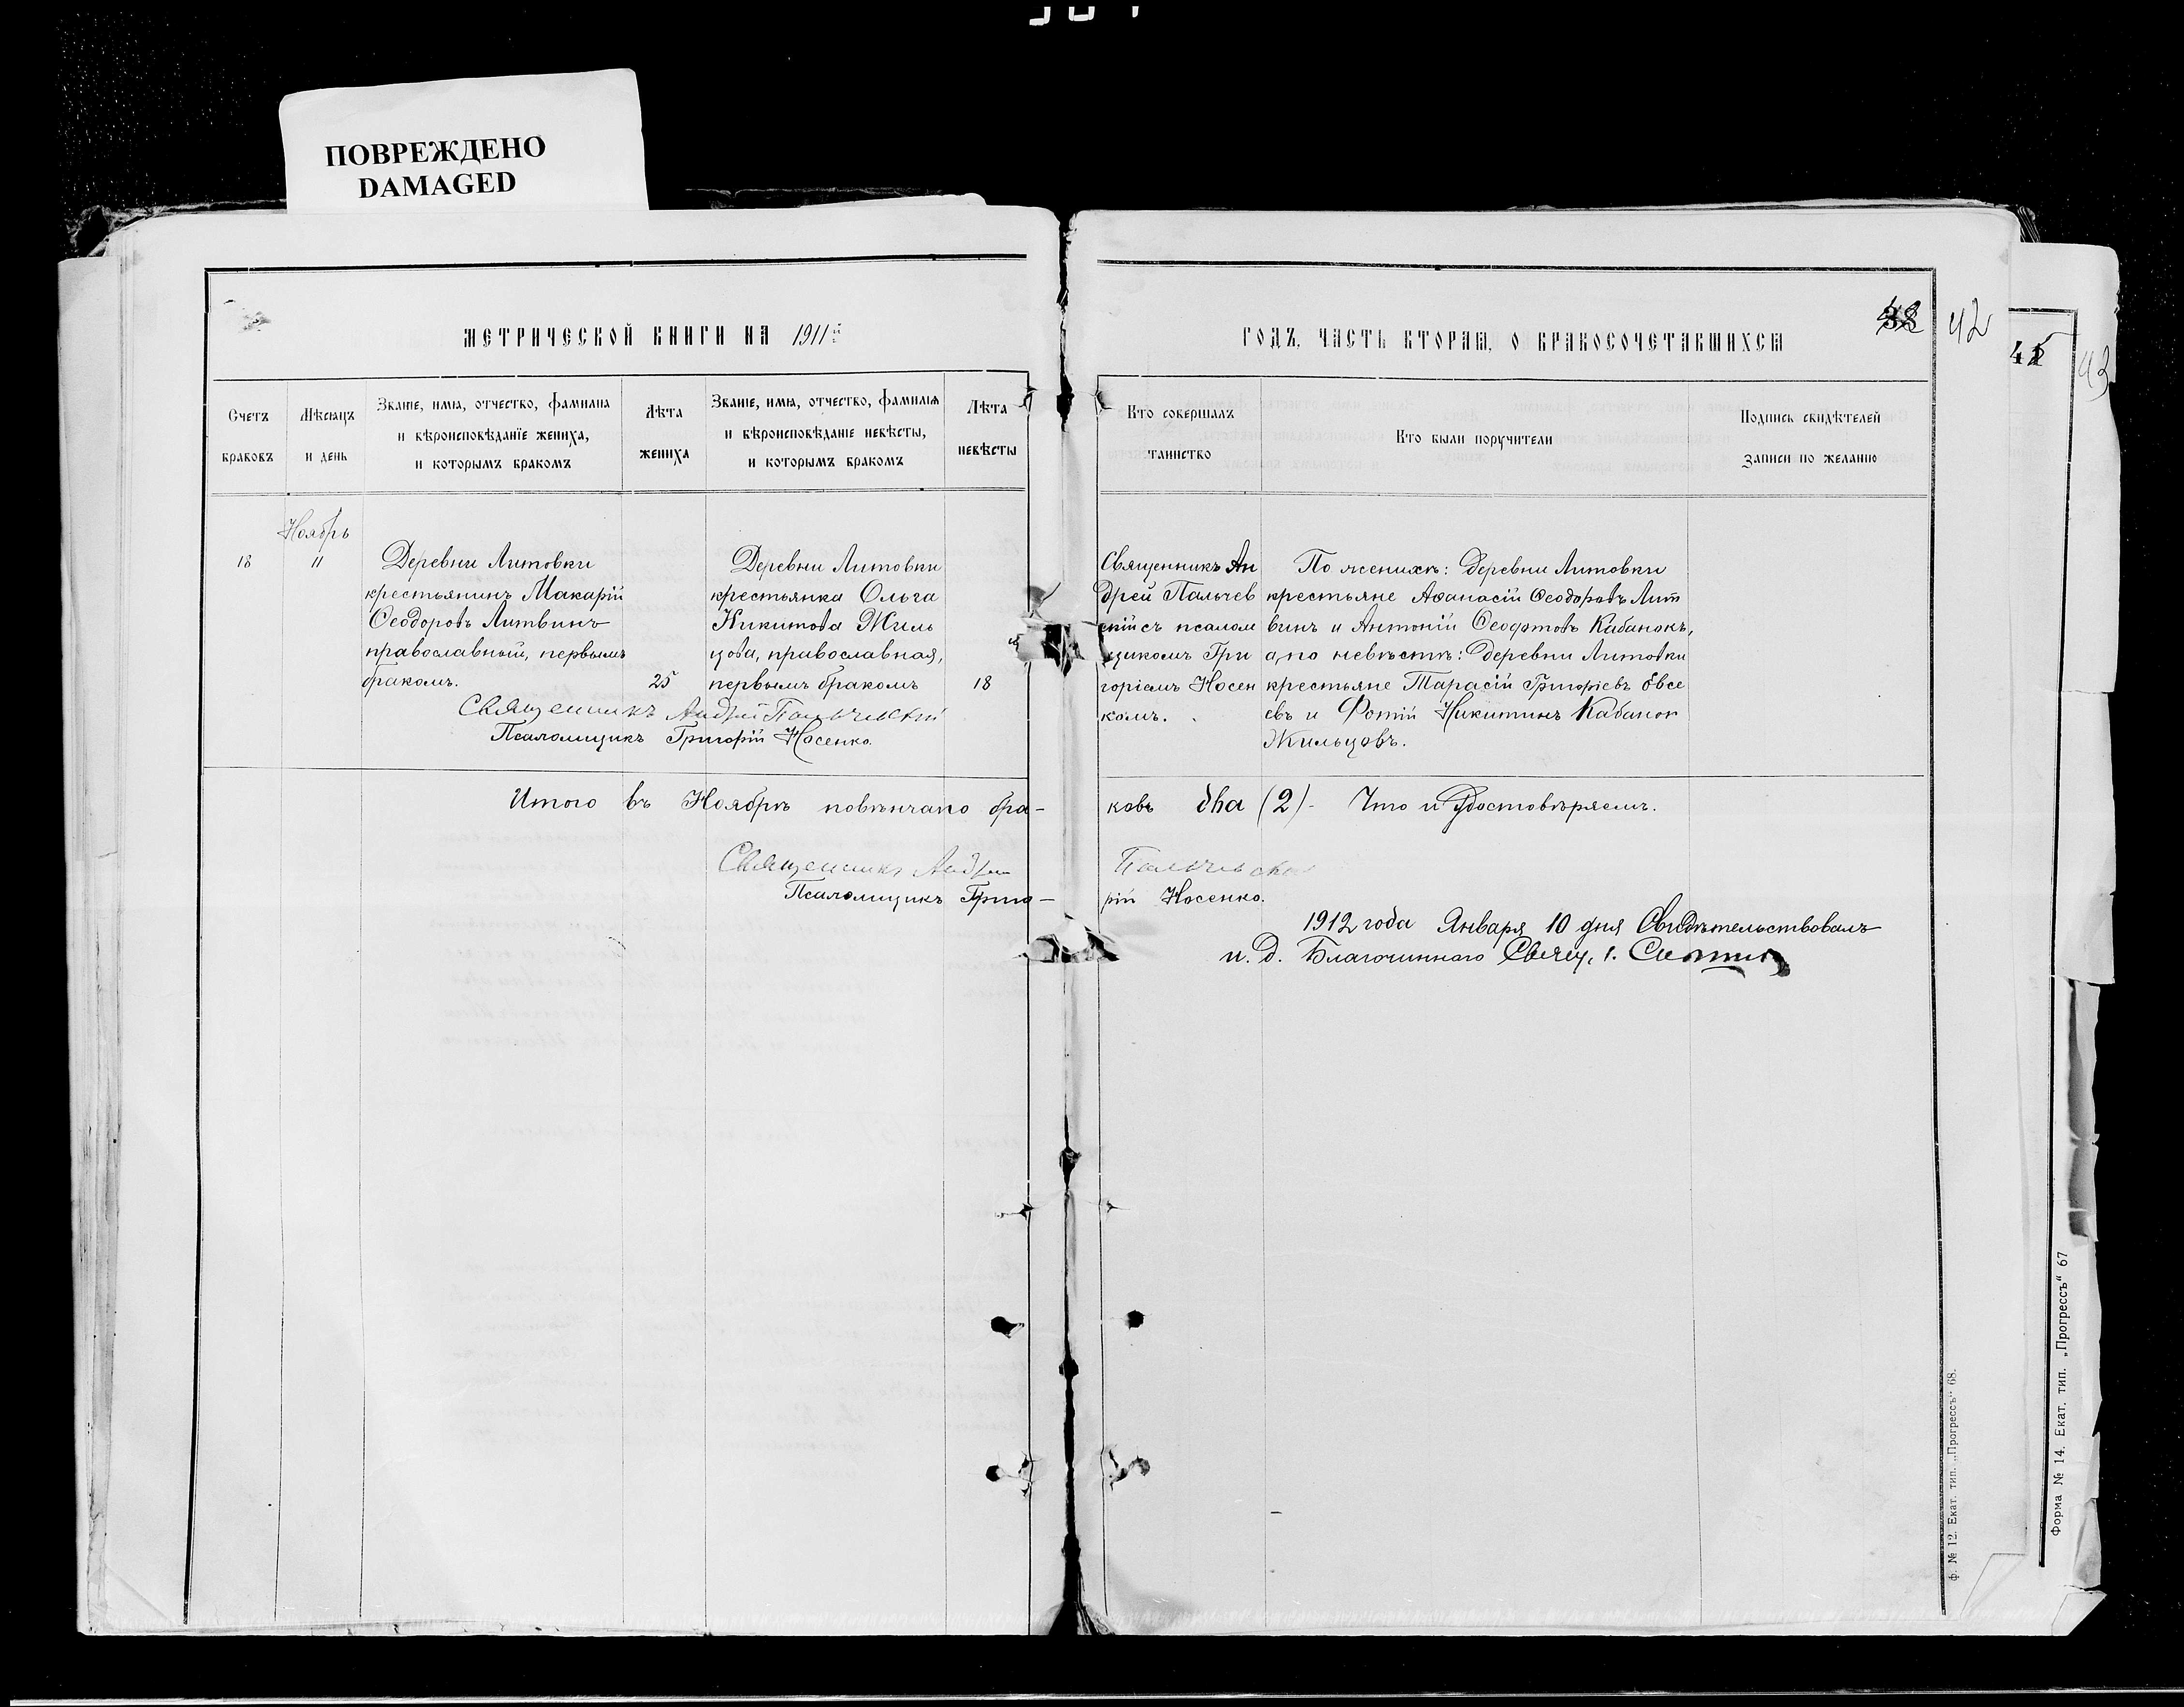 ПОВРЕЖДЕНО
DAMAGED
МЕТРИЧЕСКОЙ КНИГИ НА 1911й
ГОДЪ, ЧАСТЬ ВТОРАЯ, О БРАКОСОЧЕТАВШИХСЯ
38 42
42
43
Счетъ
браковъ
Мѣсяцъ
и день
Званіе, имя, отчество, фамилія
и вѣроисповѣданіе жениха,
и которымъ бракомъ
Лѣта
жениха
Званіе, имя, отчество, фамилія
и вѣроисповѣданіе невѣсты,
и которымъ бракомъ
Лѣта
невѣсты
Кто совершалъ
таинство
Кто были поручители
Подпись свидѣтелей
записи по желанію
18
Ноябрь
11
Деревни Литовки
крестьянинъ Макарій
Ѳеодоровъ Литвинъ
православный, первымъ
бракомъ.
25
Деревни Литовки
крестьянка Ольга
Никитова Жиль
цова, православная,
первымъ бракомъ
18
Священникъ Андрей Пальчевскій
Псаломщикъ Григорій Носенко.
Священникъ Ан
дрей Пальчев
скій съ псалом
щикомъ Гри
горіемъ Носен
комъ.
По женихѣ: деревни Литовки
крестьяне Аѳанасій Ѳеодоровъ Лит
винъ и Антоній Ѳеофтовъ Кабанокъ,
а, по невѣстѣ: деревни Литовки
крестьяне Тарасій Григоріевъ Овсе
евъ и Фотій Никитинъ Кабанок
Жильцовъ.
Итого въ Ноябрѣ повѣнчано бра-
ковъ два (2)- Что и Удостовѣряемъ.
Священникъ Андрей Пальчевскій
Псаломщикъ Григо-
рій Носенко.
1912 года Января 10 дня Свидѣтельствовалъ
и. д. Благочиннаго Свящ.
ф. № 12. Екат. тип. „Прогрессъ“ 68.
Форма № 14. Екат. тип. „Прогрессъ“ 67